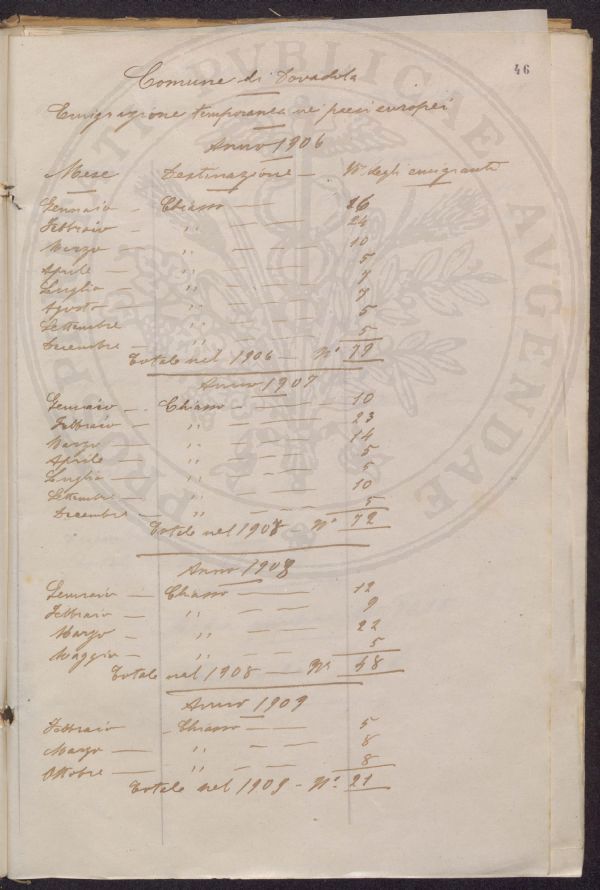 46
Comune di Dovadola
Emigrazione temporanea ne' paesi europei
Anno 1906
Mese Destinazione — N° degli emigranti
Gennaio — Chiasso — 16
Febbraio — ,, — — — 24
Marzo — ,, — — — 10
Aprile — ,, — — — 5
Luglio — ,, — — — 7
Agosto — ,, — — — 7
Settembre ,, — — — 5
Decembre — ,, — — — 5
Totale nel 1906 — N° 79
Anno 1907
Gennaio — Chiasso — 10
Febbraio — ,, — — — 23
Marzo — ,, — — — 14
Aprile — ,, — — — 5
Luglio — ,, — — — 5
Settembre — ,, — — — 10
Decembre — ,, — — — 5
Totale nel 1907 — N° 72
Anno 1908
Gennaio — Chiasso — 12
Febbraio — ,, — — — 9
Marzo — ,, — — — 22
Maggio — ,, — — — 5
Totale nel 1908 — N° 48
Anno 1909
Febbraio — Chiasso — 5
Marzo — ,, — — — 8
Ottobre — ,, — — — 8
Totale nel 1909 — N° 21
PVBLICAE AVGENDAE